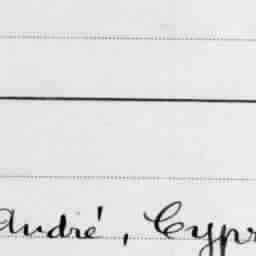 André, Cypr